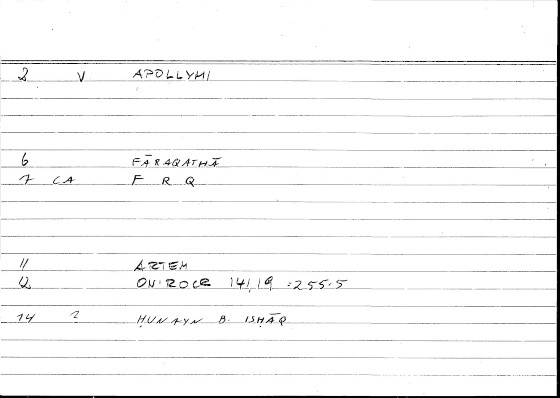 2 V APOLLYMI
6 FĀRAQATHĀ
7 CA F R Q
11 ARTEM
12 ONIROCR 141,19 :255.5
14 2 ḤUNAYN B. ISḤĀQ